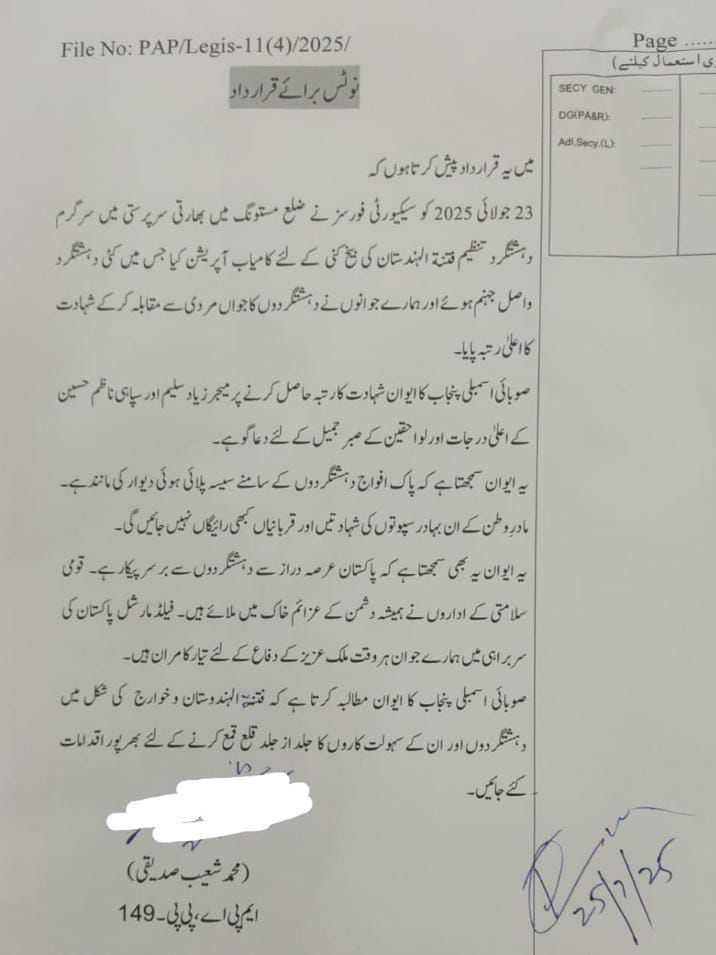 File No: PAP/Legis-11(4)/2025/
Page ......
ی استعمال کیلئے)
SECY GEN:
DG(PA&R):
Adl.Secy.(L):
نوٹس برائے قرارداد
میں یہ قرارداد پیش کرتا ہوں کہ
23 جولائی 2025 کو سیکیورٹی فورسز نے ضلع مستونگ میں بھارتی سرپرستی میں سرگرم
دہشتگرد تنظیم فتنۃ الہندستان کی بیخ کنی کے لئے کامیاب آپریشن کیا جس میں کئی دہشتگرد
واصل جہنم ہوئے اور ہمارے جوانوں نے دہشتگردوں کا جواں مردی سے مقابلہ کر کے شہادت
کا اعلیٰ رتبہ پایا۔
صوبائی اسمبلی پنجاب کا ایوان شہادت کا رتبہ حاصل کرنے پر میجر زیاد سلیم اور سپاہی ناظم حسین
کے اعلیٰ درجات اور لواحقین کے صبر جمیل کے لئے دعا گو ہے۔
یہ ایوان سمجھتا ہے کہ پاک افواج دہشتگردوں کے سامنے سیسہ پلائی ہوئی دیوار کی مانند ہے۔
مادرِ وطن کے ان بہادر سپوتوں کی شہادتیں اور قربانیاں کبھی رائیگاں نہیں جائیں گی۔
یہ ایوان یہ بھی سمجھتا ہے کہ پاکستان عرصہ دراز سے دہشتگردوں سے برسرپیکار ہے۔ قومی
سلامتی کے اداروں نے ہمیشہ دشمن کے عزائم خاک میں ملائے ہیں۔ فیلڈ مارشل پاکستان کی
سربراہی میں ہمارے جوان ہر وقت ملک عزیز کے دفاع کے لئے تیار کامران ہیں۔
صوبائی اسمبلی پنجاب کا ایوان مطالبہ کرتا ہے کہ فتنۃ الہندوستان و خوارج کی شکل میں
دہشتگردوں اور ان کے سہولت کاروں کا جلد از جلد قلع قمع کرنے کے لئے بھرپور اقدامات
کئے جائیں۔
(محمد شعیب صدیقی)
ایم پی اے، پی پی۔149
25/7/25